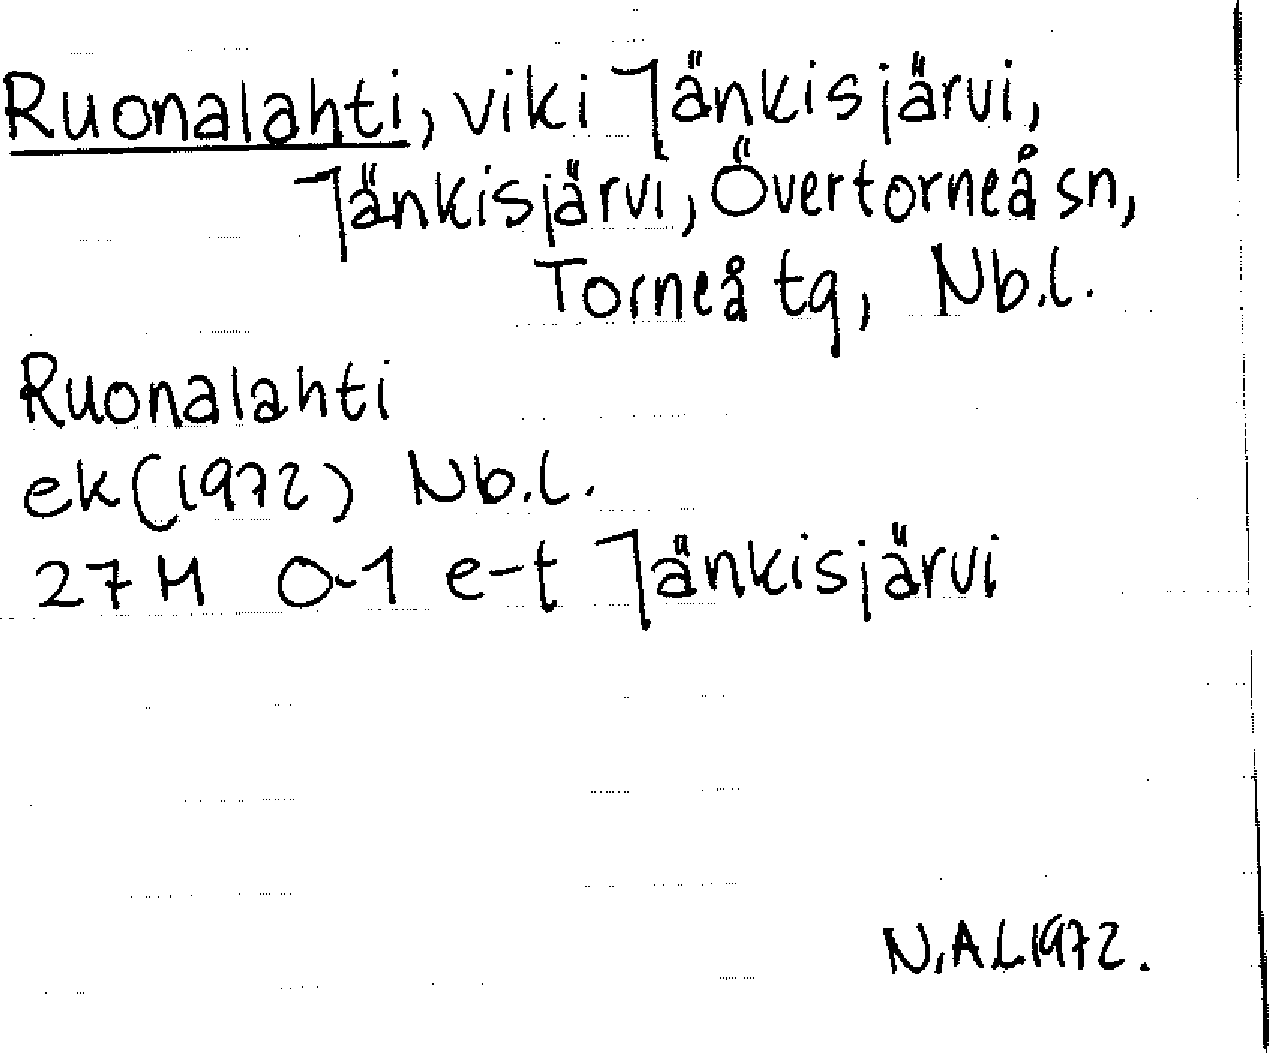 Ruonalahti, vik i Jänkisjärvi,
Jänkisjärvi, Övertorneå sn,
Torneå tg, Nb.l.
Ruonalahti
ek (1972) Nb.l.
27 M 0-1 e-t Jänkisjärvi
N.A.L 1972.